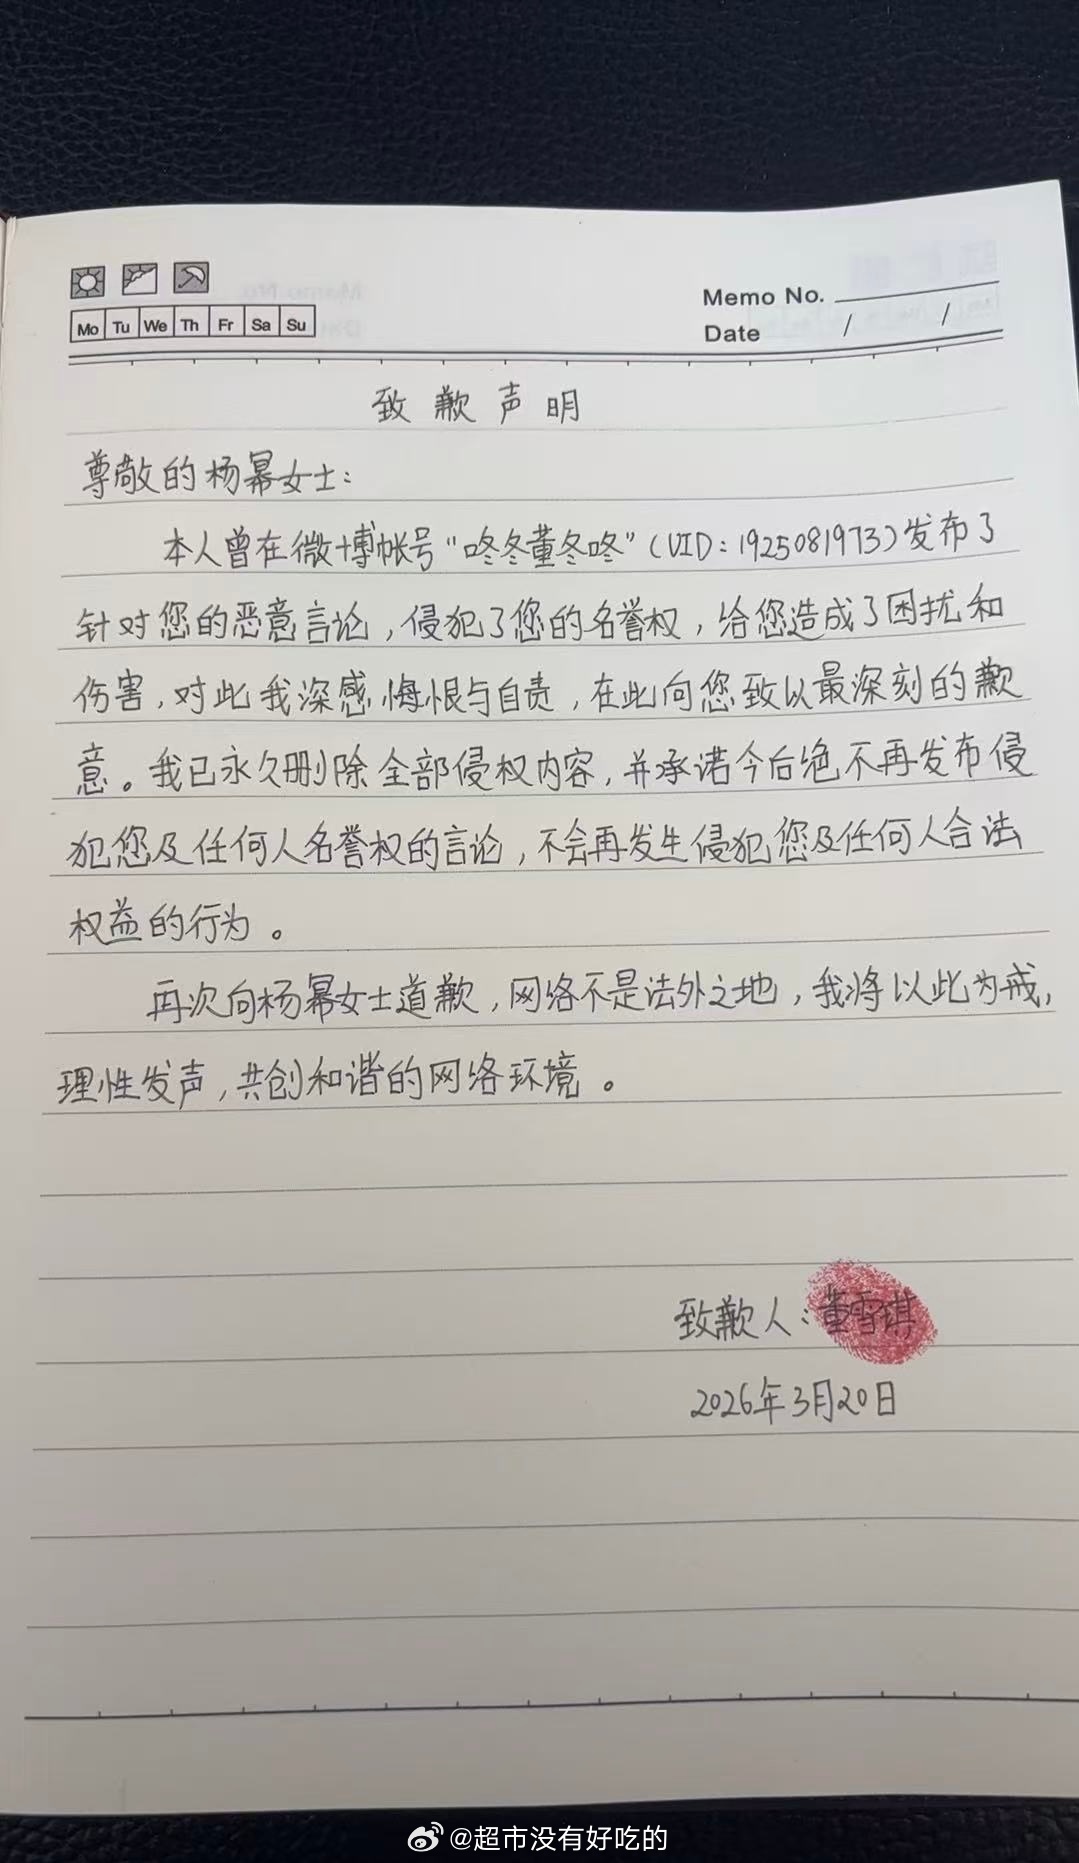 Memo No.
Mo Tu We Th Fr Sa Su
Date / /
致歉声明
尊敬的杨幂女士：
本人曾在微博帐号“咚冬董冬咚”（UID：1925081973）发布了
针对您的恶意言论，侵犯了您的名誉权，给您造成了困扰和
伤害，对此我深感悔恨与自责，在此向您致以最深刻的歉
意。我已永久删除全部侵权内容，并承诺今后绝不再发布侵
犯您及任何人名誉权的言论，不会再发生侵犯您及任何人合法
权益的行为。
再次向杨幂女士道歉，网络不是法外之地，我将以此为戒，
理性发声，共创和谐的网络环境。
致歉人：董雪琪
2026年3月20日
@超市没有好吃的